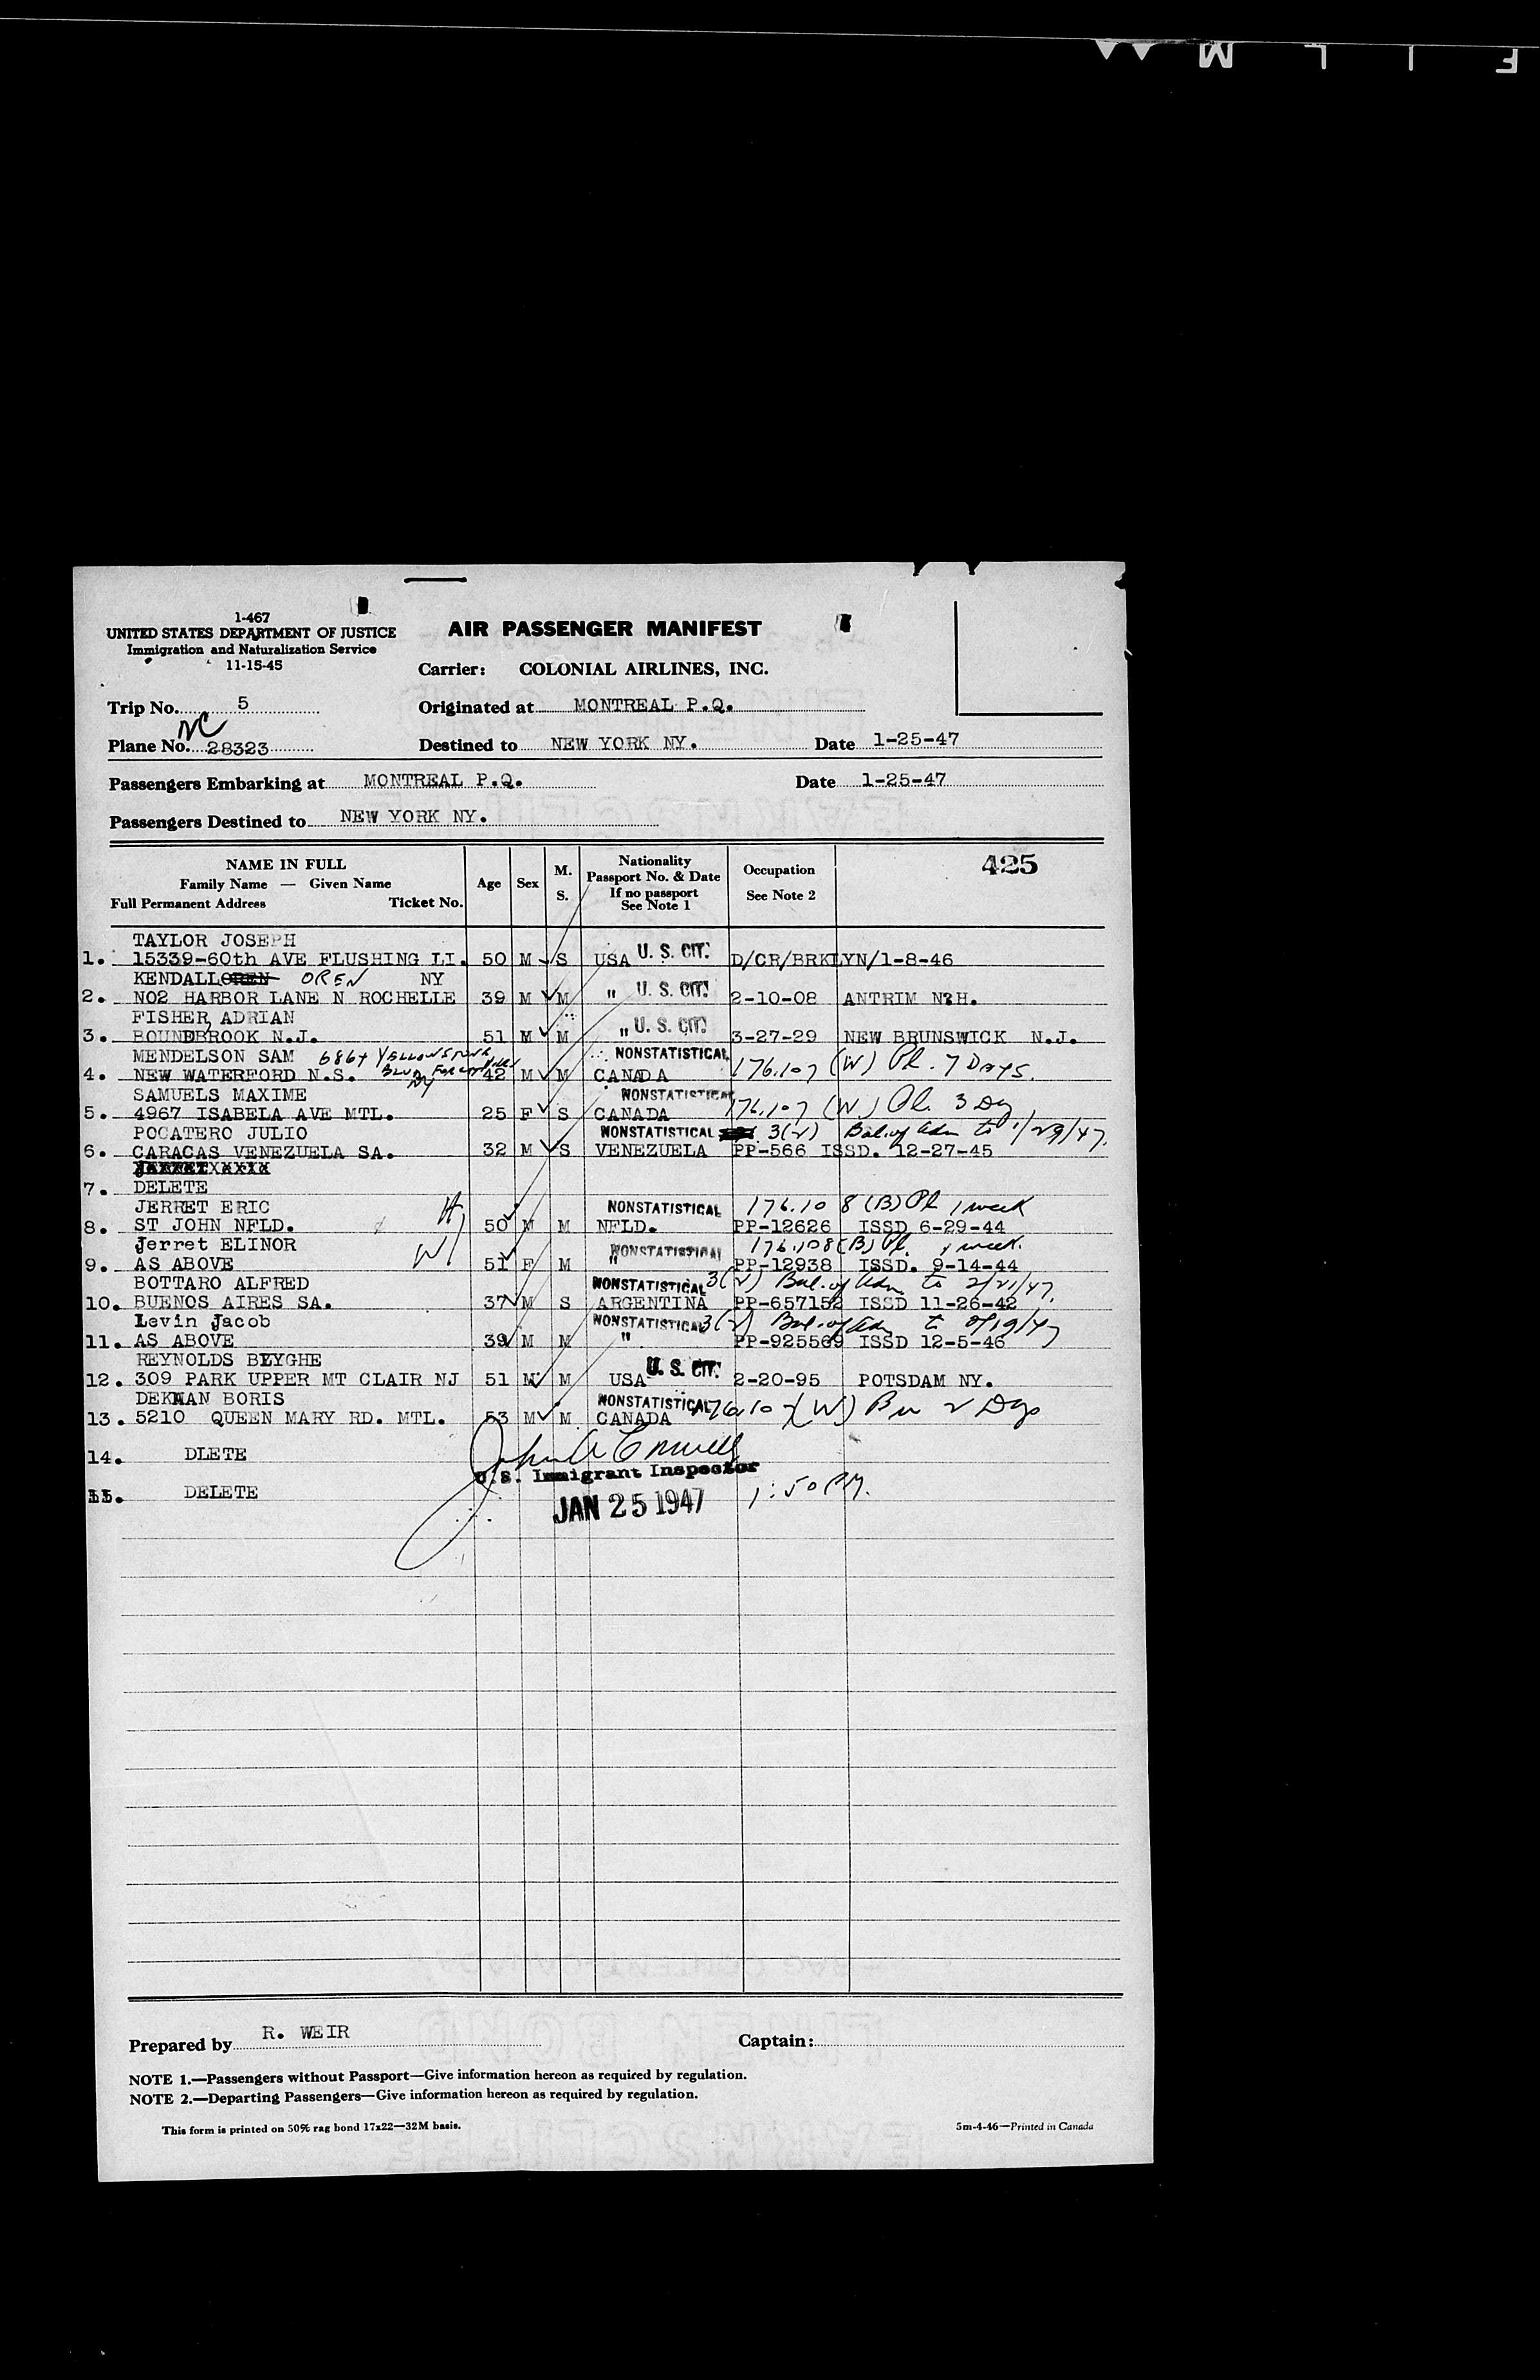 FILM
1-467
UNITED STATES DEPARTMENT OF JUSTICE
Immigration and Naturalization Service
11-15-45
AIR PASSENGER MANIFEST
Carrier: COLONIAL AIRLINES, INC.
Trip No. 5
Originated at MONTREAL P.Q.
NC
Plane No. 28323
Destined to NEW YORK NY. Date 1-25-47
Passengers Embarking at MONTREAL P.Q. Date 1-25-47
Passengers Destined to NEW YORK NY.
NAME IN FULL
Family Name — Given Name
Full Permanent Address Ticket No.
Age Sex M. S.
Nationality
Passport No. & Date
If no passport
See Note 1
Occupation
See Note 2
425
TAYLOR JOSEPH
1. 15339-60th AVE FLUSHING LI. 50 M S USA U. S. CIT. D/CR/BRKLYN/1-8-46
KENDALL OREN NY
2. NO2 HARBOR LANE N ROCHELLE 39 M M " U. S. CIT. 2-10-08 ANTRIM N.H.
FISHER, ADRIAN
3. BOUNDBROOK N.J. 51 M M " U. S. CIT. 3-27-29 NEW BRUNSWICK N.J.
MENDELSON SAM 6864 YELLOWSTONE BLVD FOREST HILLS NY NONSTATISTICAL
4. NEW WATERFORD N.S. 42 M M CANADA 176.107 (W) Pl. 7 Days.
SAMUELS MAXIME NONSTATISTICAL
5. 4967 ISABELA AVE MTL. 25 F S CANADA 176.107 (W) Pl. 3 Dy
POCATERO JULIO NONSTATISTICAL 3(2) Bal. of Adm to 1/29/47.
6. CARACAS VENEZUELA SA. 32 M S VENEZUELA PP-566 ISSD. 12-27-45
7. DELETE
JERRET ERIC H NONSTATISTICAL 176.108 (B) Pl 1 week
8. ST JOHN NFLD. 50 M M NFLD. PP-12626 ISSD 6-29-44
Jerret ELINOR W NONSTATISTICAL 176.108 (B) Pl. 1 week.
9. AS ABOVE 51 F M " PP-12938 ISSD. 9-14-44
BOTTARO ALFRED NONSTATISTICAL 3(2) Bal. of Adm to 2/21/47.
10. BUENOS AIRES SA. 37 M S ARGENTINA PP-657152 ISSD 11-26-42
Levin Jacob NONSTATISTICAL 3(2) Bal. of Adm to
11. AS ABOVE 39 M M " PP-925569 ISSD 12-5-46
REYNOLDS BLYGHE
12. 309 PARK UPPER MT CLAIR NJ 51 M M USA U. S. CIT. 2-20-95 POTSDAM NY.
DEKMAN BORIS NONSTATISTICAL
13. 5210 QUEEN MARY RD. MTL. 53 M M CANADA 176.107 (W) Bu 2 Dys
14. DLETE
U.S. Immigrant Inspector
DELETE
JAN 25 1947 1:50 PM.
Prepared by R. WEIR
Captain:
NOTE 1.—Passengers without Passport—Give information hereon as required by regulation.
NOTE 2.—Departing Passengers—Give information hereon as required by regulation.
This form is printed on 50% rag bond 17x22—32M basis.
5m-4-46—Printed in Canada